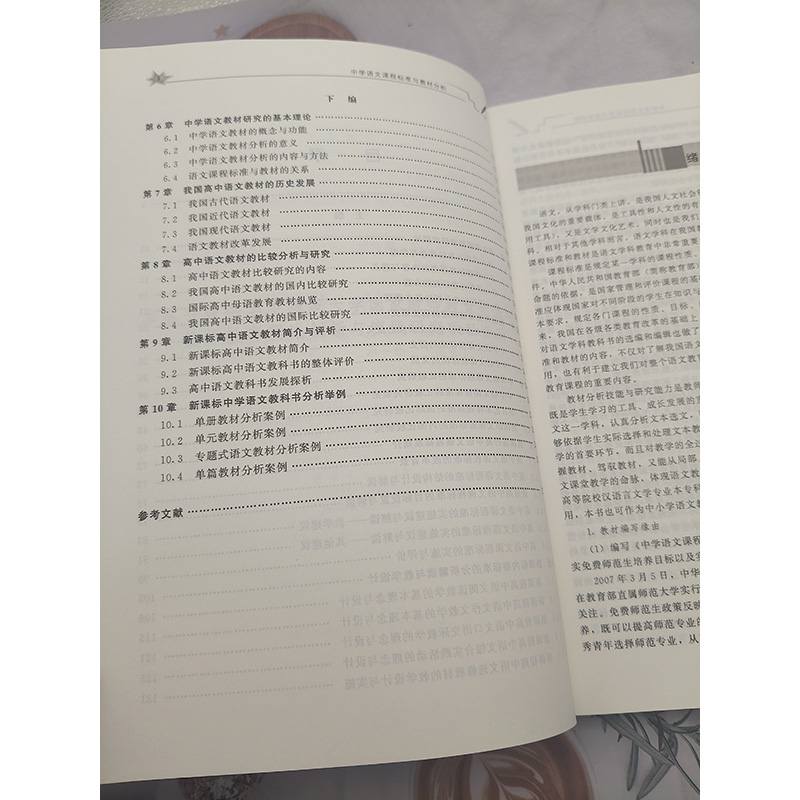 中学语文课程标准与教材分析
下 编
第 6 章 中学语文教材研究的基本理论
6.1 中学语文教材的概念与功能
6.2 中学语文教材分析的意义
6.3 中学语文教材分析的内容与方法
6.4 语文课程标准与教材的关系
第 7 章 我国高中语文教材的历史发展
7.1 我国古代语文教材
7.2 我国近代语文教材
7.3 我国现代语文教材
7.4 语文教材改革发展
第 8 章 高中语文教材的比较分析与研究
8.1 高中语文教材比较研究的内容
8.2 我国高中语文教材的国内比较研究
8.3 国际高中母语教育教材纵览
8.4 我国高中语文教材的国际比较研究
第 9 章 新课标高中语文教材简介与评析
9.1 新课标高中语文教材简介
9.2 新课标高中语文教科书的整体评价
9.3 高中语文教科书发展探析
第 10 章 新课标中学语文教科书分析举例
10.1 单册教材分析案例
10.2 单元教材分析案例
10.3 专题式语文教材分析案例
10.4 单篇教材分析案例
参考文献
绪
语文，从学科门类上讲，是我国人文社会科
我国文化的重要载体，是工具性和人文性的有
用工具），又是文学文化艺术，同时也是我们
科，相对于其他学科而言，语文学科在我国教
课程标准和教材是语文学科教育中非常重要
课程标准是规定某一学科的课程性质、
件。中华人民共和国教育部（简称教育部）
命题的依据，是国家管理和评价课程的基
准应体现国家对不同阶段的学生在知识与
本要求，规定各门课程的性质、目标、
来，我国在各级各类教育改革的基础上
对语文学科教科书的选编和编辑也做了
准和教材的内容，不仅对了解我国语文
用，也有利于建立我们对整个语文教
育课程的重要内容。
教材分析技能与研究能力是教师
既是学生学习的工具、成长发展的
文这一学科，认真分析文本选文，
够依据学生实际选择和处理文本教
学的首要环节，而且对教学的全过
握教材、驾驭教材，又能从局部
文课堂教学的命脉，体现语文教
高等院校汉语言文学专业本专科
用，本书也可作为中小学语文教
1. 教材编写缘由
（1）编写《中学语文课程
实免费师范生培养目标以及实
2007 年 3 月 5 日，中华
在教育部直属师范大学实行
关注。免费师范生政策反映
养，既可以提高师范专业的
秀青年选择师范专业，从